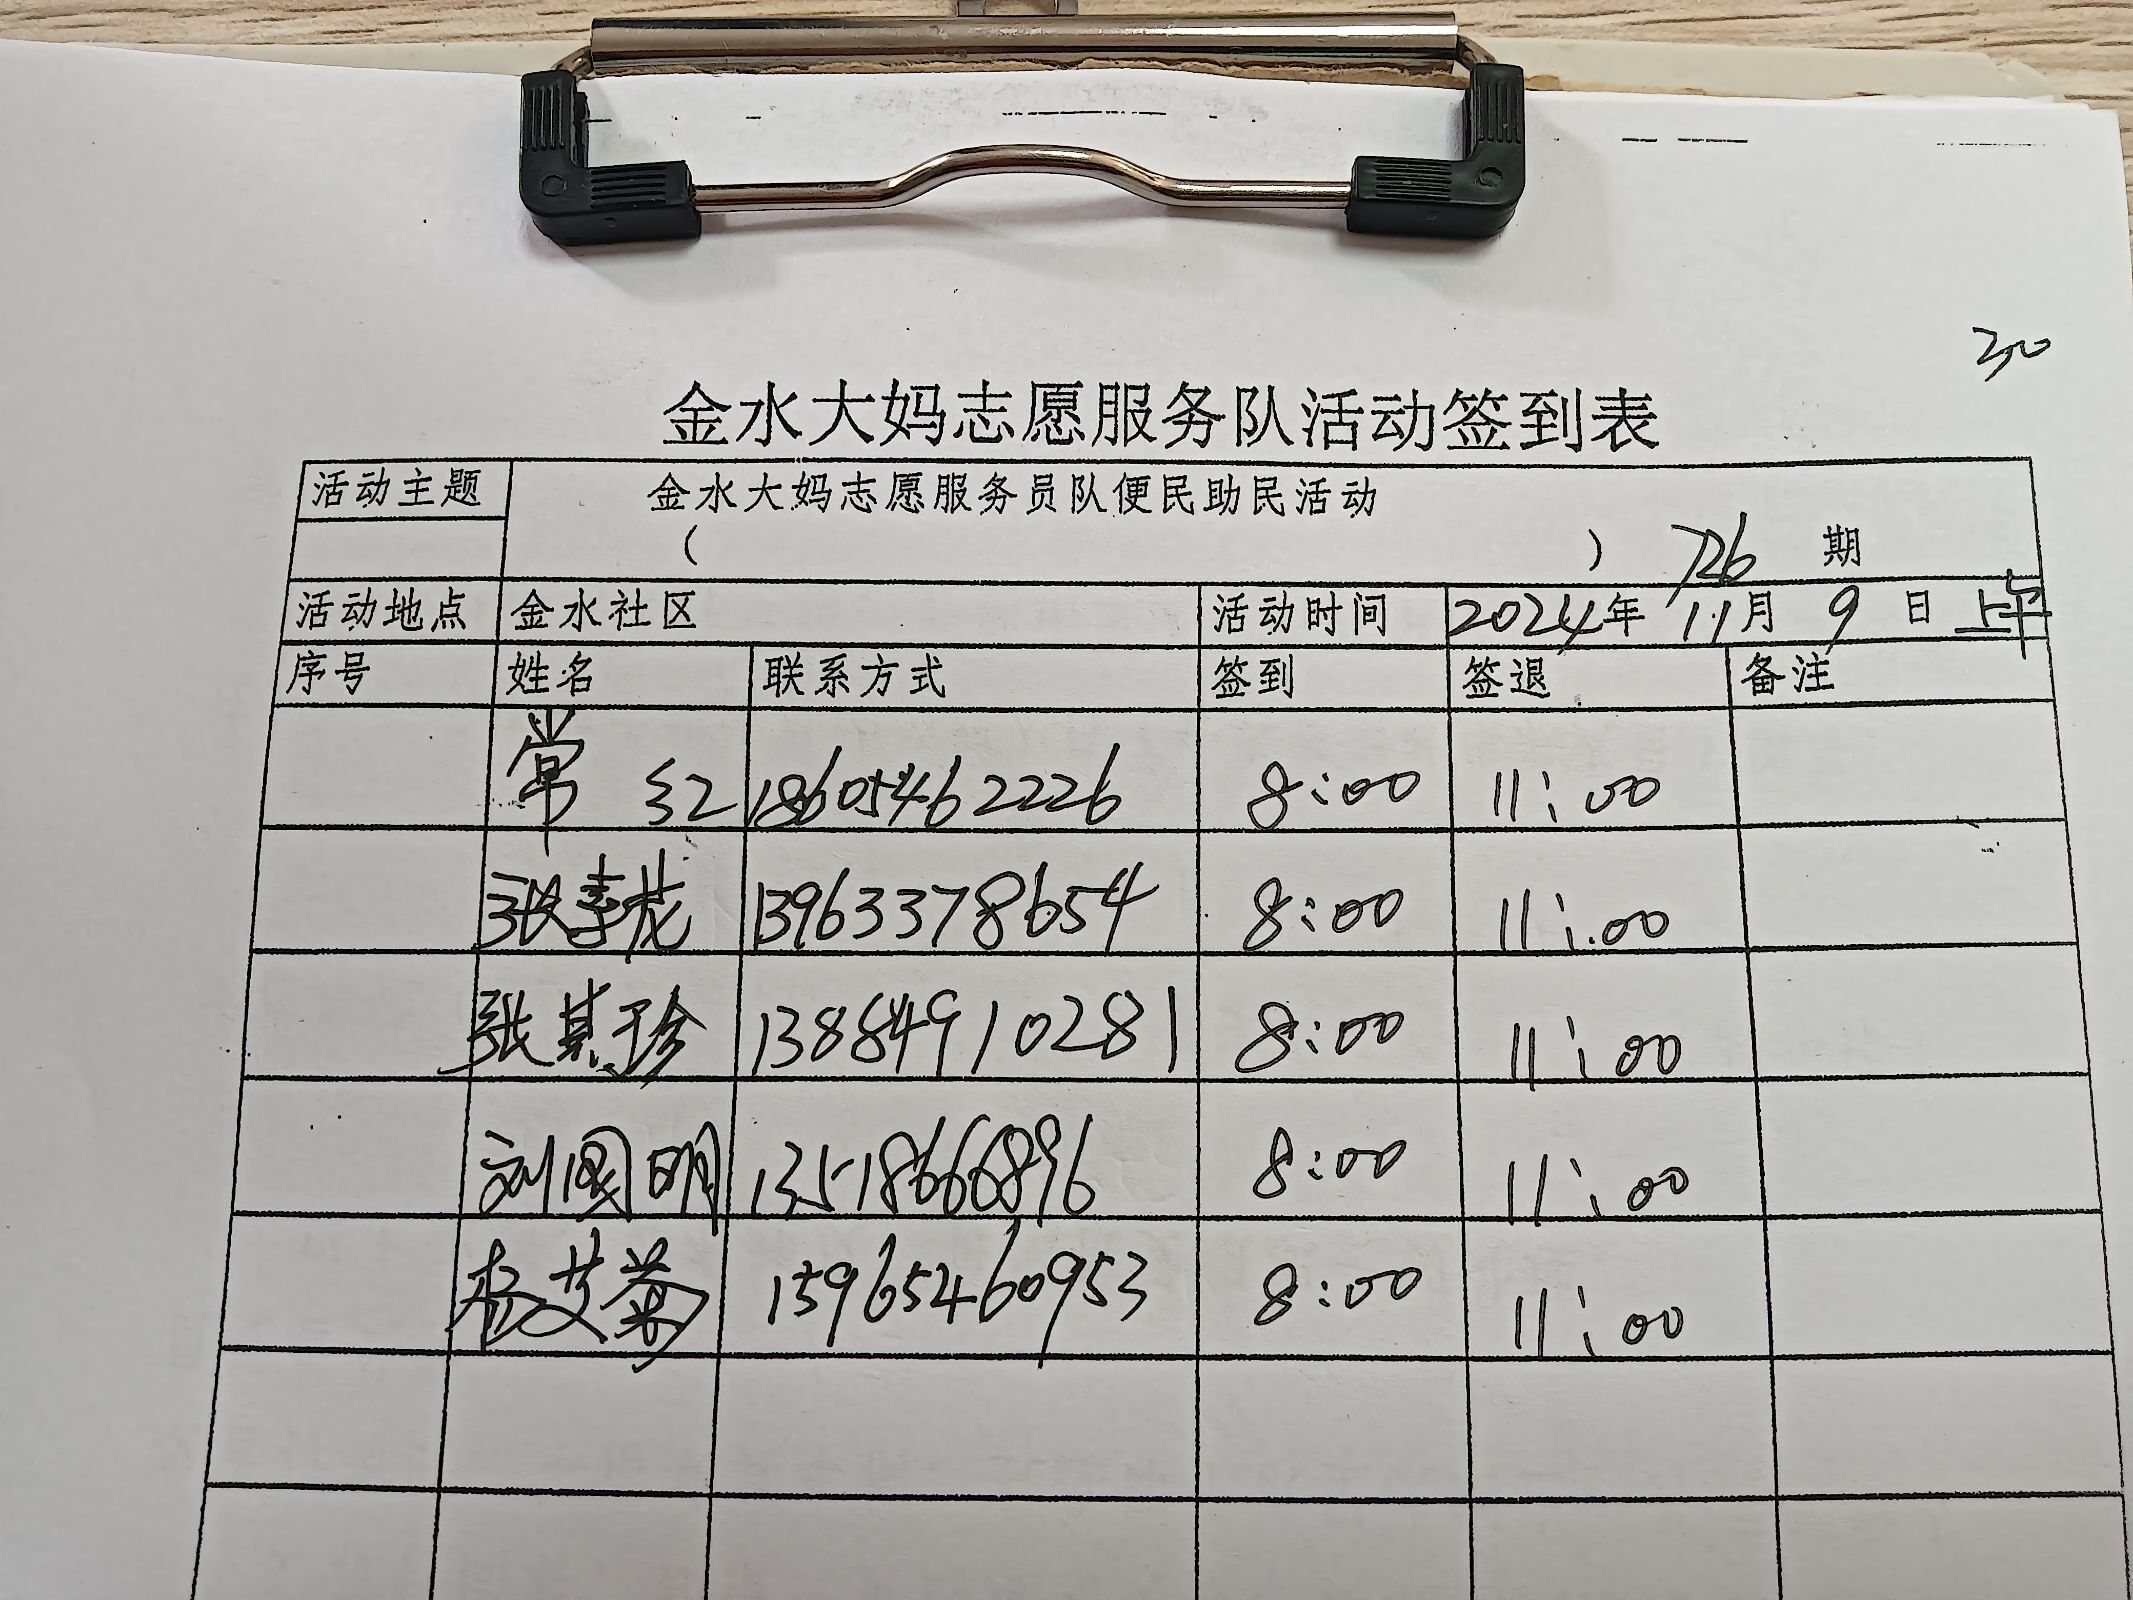 30
金水大妈志愿服务队活动签到表
活动主题 金水大妈志愿服务员队便民助民活动
( ) 726 期
活动地点 金水社区 活动时间 2024年 11月 9 日 上午
序号 姓名 联系方式 签到 签退 备注
常红 18605462226 8:00 11:00
张秀花 13963378654 8:00 11:00
张其珍 13884910281 8:00 11:00
刘国明 13518666896 8:00 11:00
李艾荣 15965460953 8:00 11:00